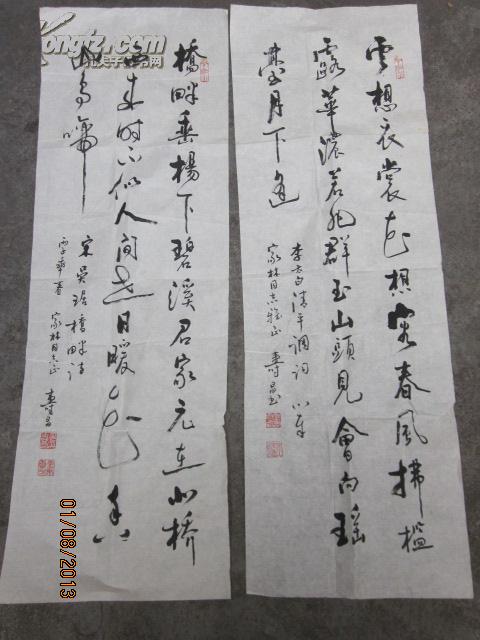 雲想衣裳花想容春風拂檻
露華濃若非群玉山頭見會向瑤
臺月下逢
李太白清平調詞
家林同志雅正 壽昌書
橋畔垂楊下碧溪君家元在北橋
西來時不似人間世日暖花香
山鳥啼
宋吳琚橋畔詩
家林同志正 壽昌
01/08/2013